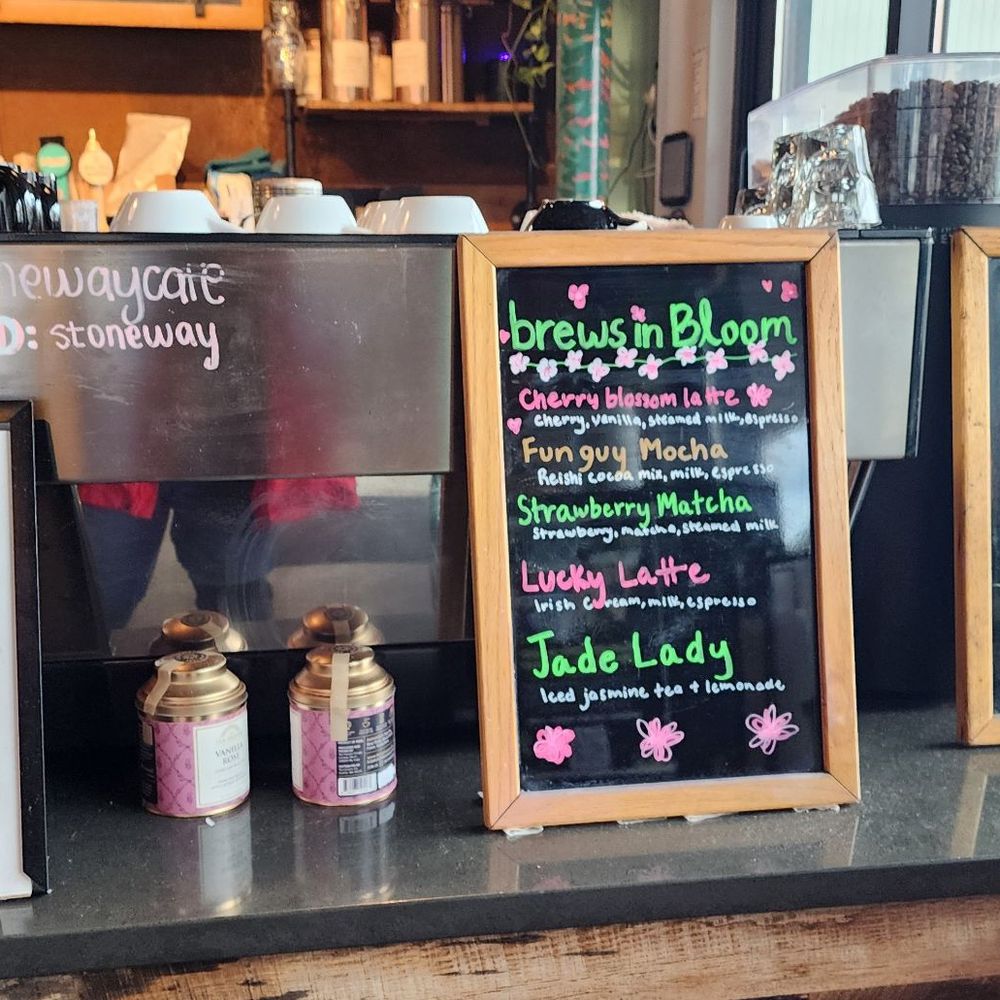 newaycafe
D: stoneway
brews in Bloom
Cherry blossom latte
cherry, vanilla, steamed milk, espresso
Fun guy Mocha
Reishi cocoa mix, milk, espresso
Strawberry Matcha
strawberry, matcha, steamed milk
Lucky Latte
Irish cream, milk, espresso
Jade Lady
Iced jasmine tea + lemonade
VANILLA
ROSE